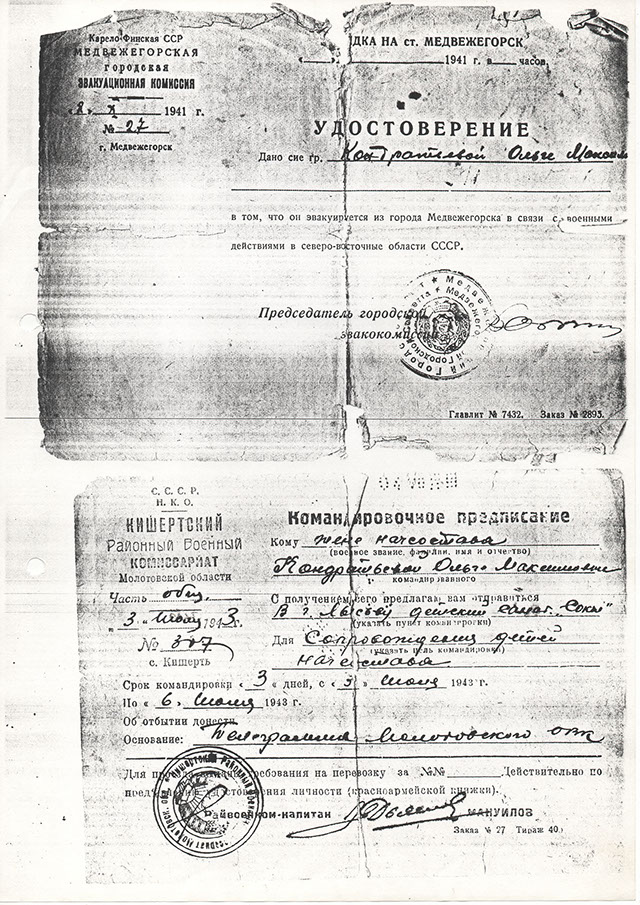 Карело-Финская ССР
МЕДВЕЖЕГОРСКАЯ
городская
ЭВАКУАЦИОННАЯ КОМИССИЯ
1941 г.
№ 27
г. Медвежегорск
ДКА НА ст. МЕДВЕЖЕГОРСК
1941 г. в часов
УДОСТОВЕРЕНИЕ
Дано сие гр. Кондратьевой Ольге Максим
в том, что он эвакуируется из города Медвежегорска в связи с военными
действиями в северо-восточные области СССР.
Председатель городской
эвакокомиссии
Главлит № 7432. Заказ № 2893.
С.С.С.Р.
Н.К.О.
КИШЕРТСКИЙ
Районный Военный
КОМИССАРИАТ
Молотовской области
Часть общ.
"3" Июня 1943 г.
№ 307
с. Кишерть
Командировочное предписание
Кому жене начсостава
(военное звание, фамилия, имя и отчество)
Кондратьевой Ольге Максимовне
командированного
С получением сего предлагаю вам отправиться
В г. Лысьву детский санат. "Сокол"
(указать пункт командировки)
Для Сопровождения детей
(указать цель командировки)
начсостава
Срок командировки "3" дней, с "3" Июня 1943 г.
По "6" Июня 1943 г.
Об отбытии донести
Основание: Телеграмма Молотовского овк
Для требования на перевозку за №№ Действительно по
удостоверения личности (красноармейской книжки).
Райвоенком-капитан МАНУИЛОВ
Заказ № 27 Тираж 40